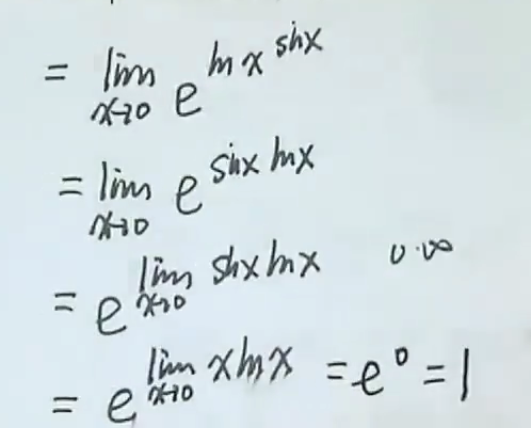 = lim x→0 e^{ln x^{sinx}}
= lim x→0 e^{sinx lnx}
= e^{lim x→0 sinx lnx} 0·∞
= e^{lim x→0 x lnx} = e^0 = 1